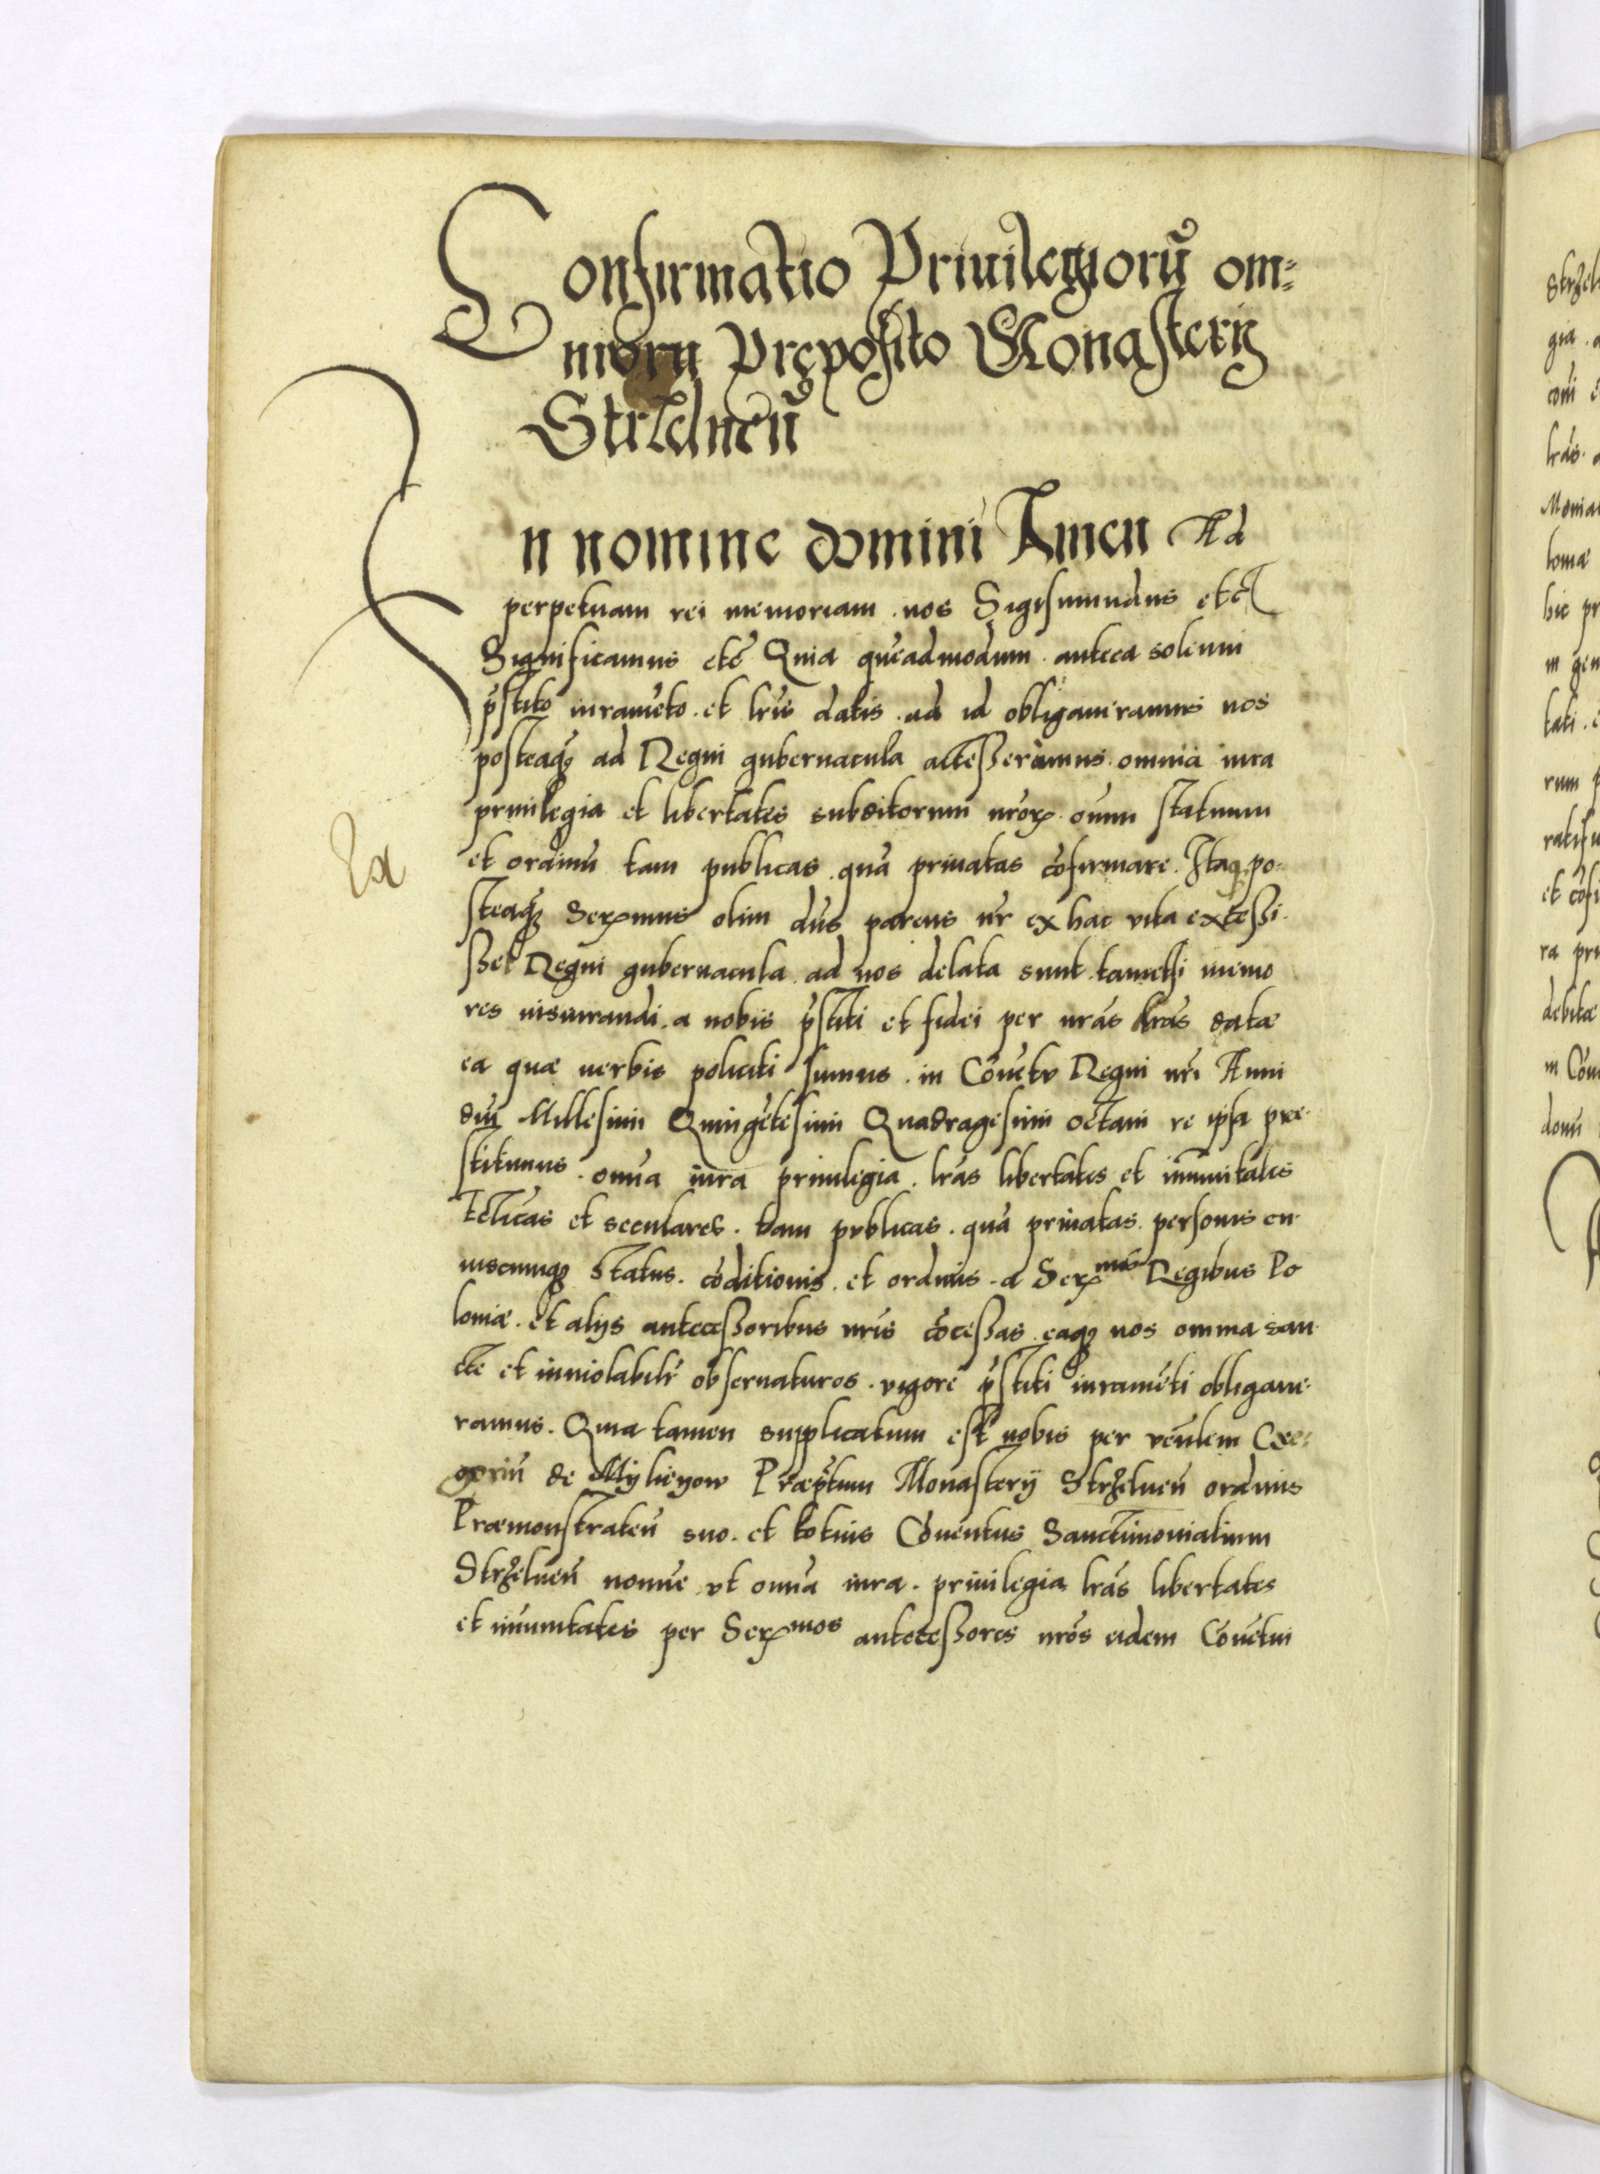 Confirmatio Priuilegiorū om=
niorū Pręposito Monasterij
Strzelneñ
In nomine domini Amen Ad
perpetuam rei memoriam. nos Sigismundus etc̃
Significamus etc̃ Quia quēadmodum. antea solenni
p̃stito iuramēto. et lr̃is datis. ad id obligaueramus nos
posteaq̃ ad Regni gubernacula accesseramus. omnia iura
priuilegia et libertates subditorum nr̃oꝝ. om̃iu statuum
et ordinū tam publicas. quā priuatas cōfirmare. Itaq̨ po-
steaq̃ Serᵐmus olim dn̄s parens nr̃ ex hac vita excessi-
sset Regni gubernacula ad nos delata sunt. tametsi memo
res iusiurandi. a nobis p̃stiti et fidei per nr̃as lr̃as datæ
ea quæ uerbis policiti sumus. in Cōuētu Regni nr̃i Anni
dn̄i Millesimi Quingētesimi Quadragesimi octaui re ipsa præ-
stitimus. om̄ia iura priuilegia. lr̃as libertates et im̄unitates
Ecclīcas et seculares. tam publicas. quā priuatas. personis cu-
iuscunq̨ status. cōditionis. et ordinis. a Serᵐmis Regibus Po
loniæ. et alijs antecessoribus nr̃is cōcessas. eaq̨ nos omnia san-
cte et inuiolabilr̃ obseruaturos. vigore p̃stiti iuramēti obligaue-
ramus. Quia tamen supplicatum est nobis per venl̃em Gre-
goriū de Mylieyow Præp̃tum Monasterij Strzelneñ ordinis
Præmonstrateñ suo. et totius Cōuentus Sanctimonialium
Strzelneñ nomīe vt om̄ia iura. priuilegia lr̃as libertates
et im̄unitates per Serᵐmos antecessores nr̃os eidem Cōuētui